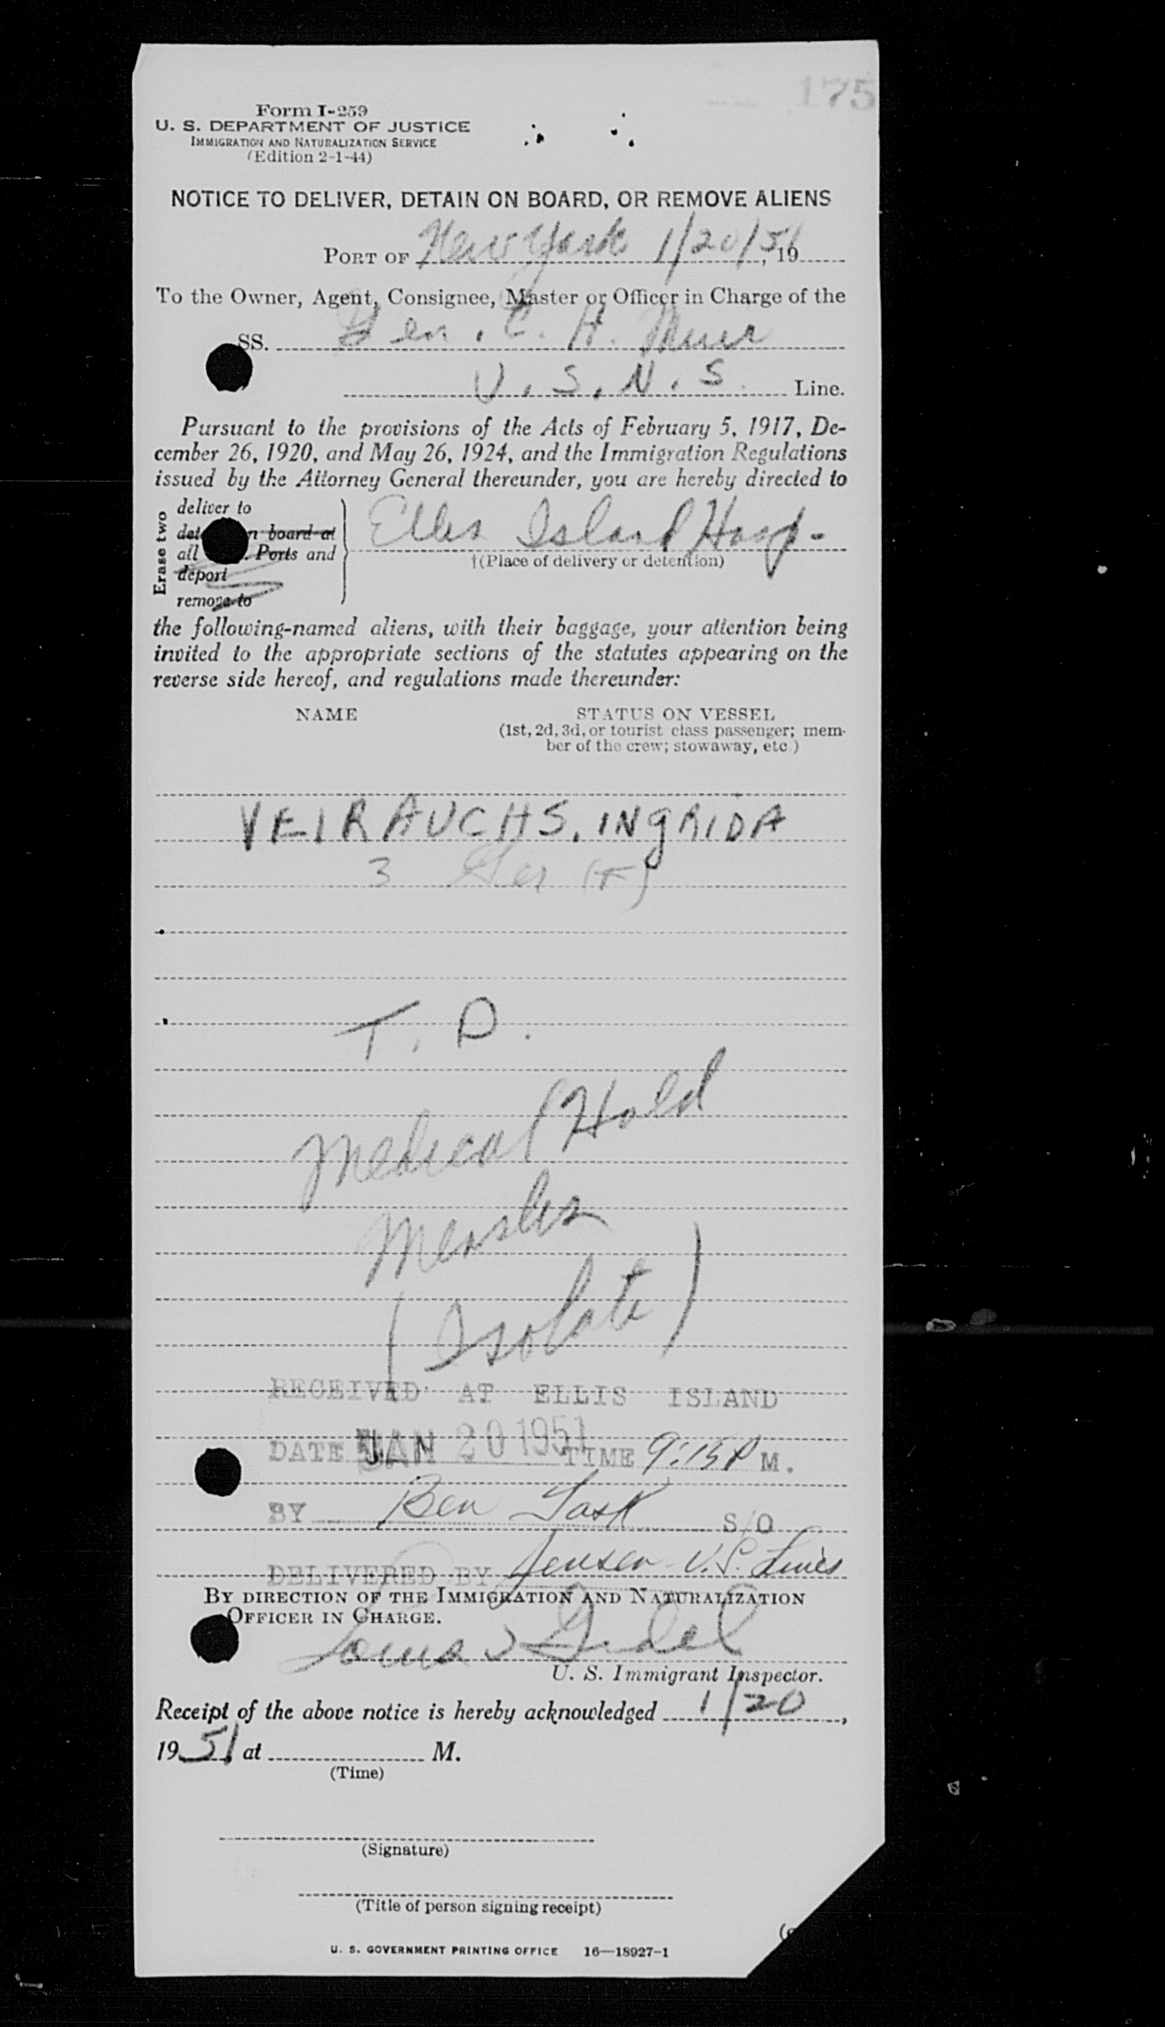 175
Form I-259
U. S. DEPARTMENT OF JUSTICE
IMMIGRATION AND NATURALIZATION SERVICE
(Edition 2-1-44)
NOTICE TO DELIVER, DETAIN ON BOARD, OR REMOVE ALIENS
PORT OF New York 1/20/51, 19
To the Owner, Agent, Consignee, Master or Officer in Charge of the
SS. Gen. C. H. Muir
U.S.N.S. Line.
Pursuant to the provisions of the Acts of February 5, 1917, De-
cember 26, 1920, and May 26, 1924, and the Immigration Regulations
issued by the Attorney General thereunder, you are hereby directed to
Erase two
deliver to
board at
all Ports and
deport
remove to
Ellis Island Hosp.
†(Place of delivery or detention)
the following-named aliens, with their baggage, your attention being
invited to the appropriate sections of the statutes appearing on the
reverse side hereof, and regulations made thereunder:
NAME STATUS ON VESSEL
(1st, 2d, 3d, or tourist class passenger; mem-
ber of the crew; stowaway, etc.)
VEIRAUCHS, INGRIDA
3 Ger
T. D.
Medical Hold
Measles
(Isolate)
RECEIVED AT ELLIS ISLAND
DATE JAN 20 1951 TIME 9:15 P M.
BY Ben S/O
DELIVERED BY Jensen U.S. Lines
BY DIRECTION OF THE IMMIGRATION AND NATURALIZATION
OFFICER IN CHARGE.
Louis
U. S. Immigrant Inspector.
Receipt of the above notice is hereby acknowledged 1/20,
1951 at M.
(Time)
(Signature)
(Title of person signing receipt)
U. S. GOVERNMENT PRINTING OFFICE 16—18927-1